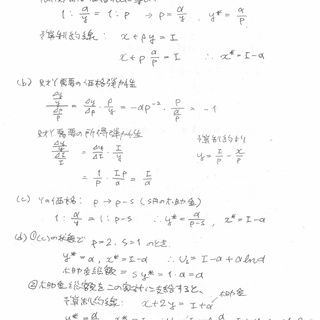 1 : α/y = 1 : P → P = α/y, y* = α/P
予算制約線: x + Py = I
x + P α/P = I ∴ x* = I-α
(b) 財Yの需要の価格弾力性
(Δy/y)/(ΔP/P) = Δy/ΔP · P/y = -αP⁻² · P/(α/P) = -1
財Y需要の所得弾力性
(Δy/y)/(ΔI/I) = Δy/ΔI · I/y
予算制約より
y = I/P - x/P
= 1/P · IP/α = I/α
(c) Yの価格: P → P-S (S円の補助金)
1 : α/y = 1 : P-S ∴ y* = α/(P-S), x* = I-α
(d) ①(c)の状態で P=2, S=1 のとき
y* = α, x* = I-α ∴ U₁ = I-α + α ln α
補助金総額 = Sy* = 1·α = α
②補助金総額をこの家計に支給すると、
予算制約線: x + 2y = I + α 補助金